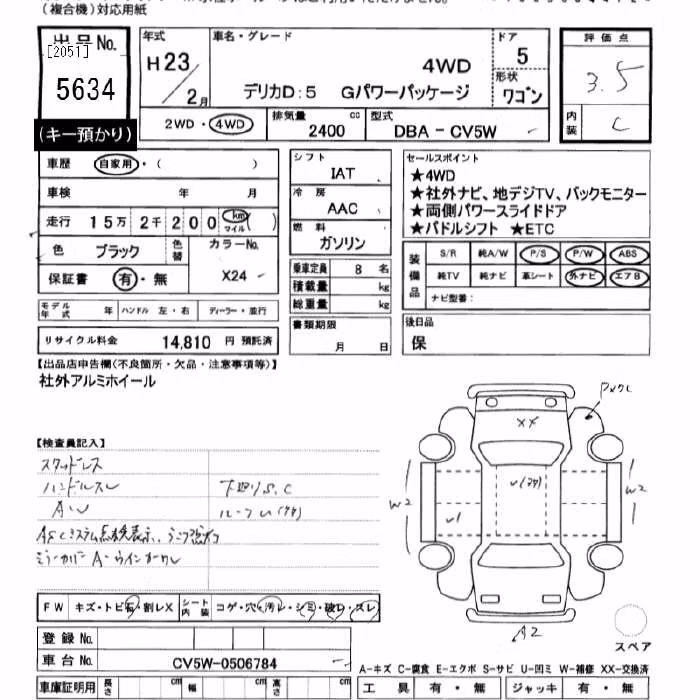 (複合機)対応用紙
出品No. [2051] 5634
(キー預かり)
年式 H23/2月
車名・グレード 4WD
デリカD:5 Gパワーパッケージ
ドア 5
形状 ワゴン
評価点 3.5
内装 C
2WD・4WD
排気量 2400 cc
型式 DBA-CV5W
車歴 自家用・( )
車検 年 月
走行 15万2千200 km マイル ( )
色 ブラック 色替 カラーNo. X24
保証書 有・無
モデル年式 年 ハンドル 左・右 ディーラー・並行
リサイクル料金 14,810 円 預託済
シフト IAT
冷房 AAC
燃料 ガソリン
乗車定員 8 名
積載量 kg
総重量 kg
書類期限 月 日
セールスポイント
★4WD
★社外ナビ、地デジTV、バックモニター
★両側パワースライドドア
★パドルシフト ★ETC
装備品 S/R 純A/W P/S P/W ABS
純TV 純ナビ 革シート 外ナビ エアB
ナビ型番:
後日品
保
【出品店申告欄(不良箇所・欠品・注意事項等)】
社外アルミホイール
【検査員記入】
スタッドレス
ハンドルスレ
下廻りS、C
AW
XX
W2
W2
A2
FW キズ・トビ石・割レX シート内装 コゲ・穴・汚レ・シミ・破レ・スレ
登録No.
車台No. CV5W-0506784
車庫証明用 長さ cm 幅 cm 高さ cm
スペア
A-キズ C-腐食 E-エクボ S-サビ U-凹ミ W-補修 XX-交換済
工具 有・無 ジャッキ 有・無